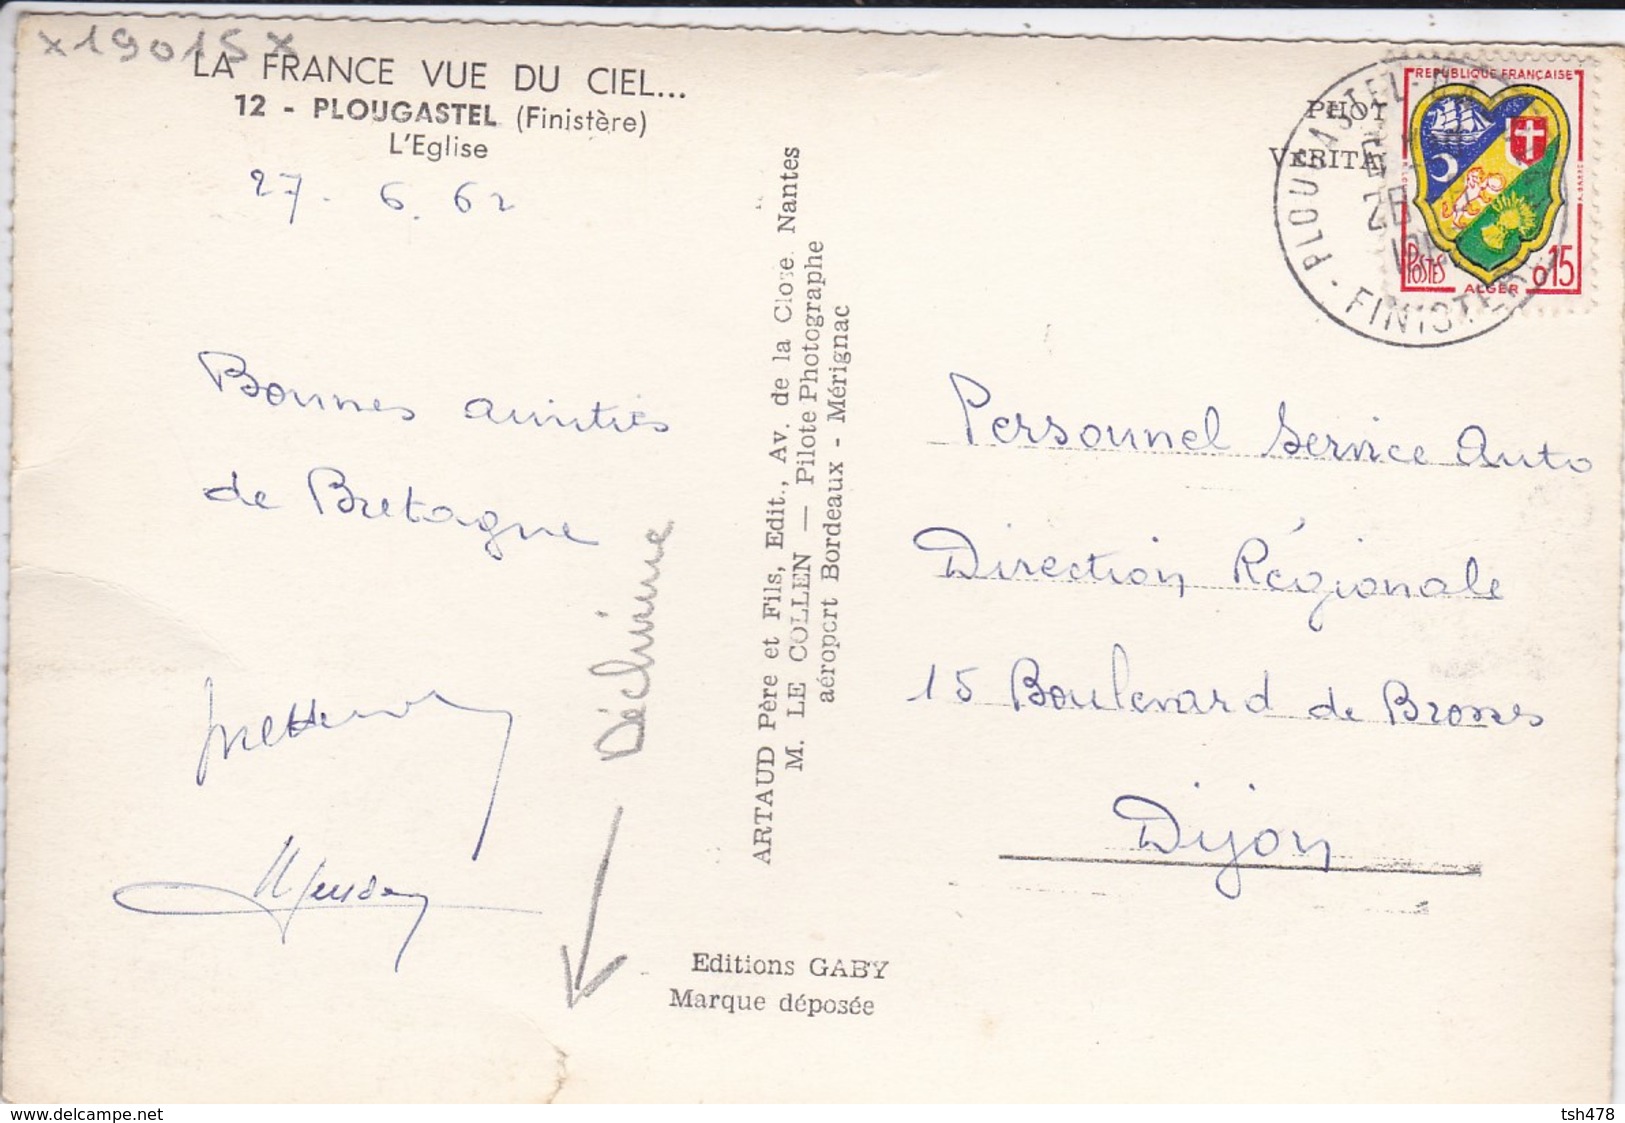 x19015x
LA FRANCE VUE DU CIEL...
12 - PLOUGASTEL (Finistère)
L'Eglise
27. 6. 62
Bonnes amitiés
de Bretagne
Déchirure
ARTAUD Père et Fils, Edit., Av. de la Close. Nantes
M. LE COLLEN — Pilote Photographe
aéroport Bordeaux - Mérignac
Editions GABY
Marque déposée
PHOT
VERITA
REPUBLIQUE FRANÇAISE
POSTES
ALGER
0,15
PLOUGASTEL-
28
FINISTERE
Personnel Service Auto
Direction Régionale
15 Boulevard de Brosses
Dijon
www.delcampe.net
tsh478